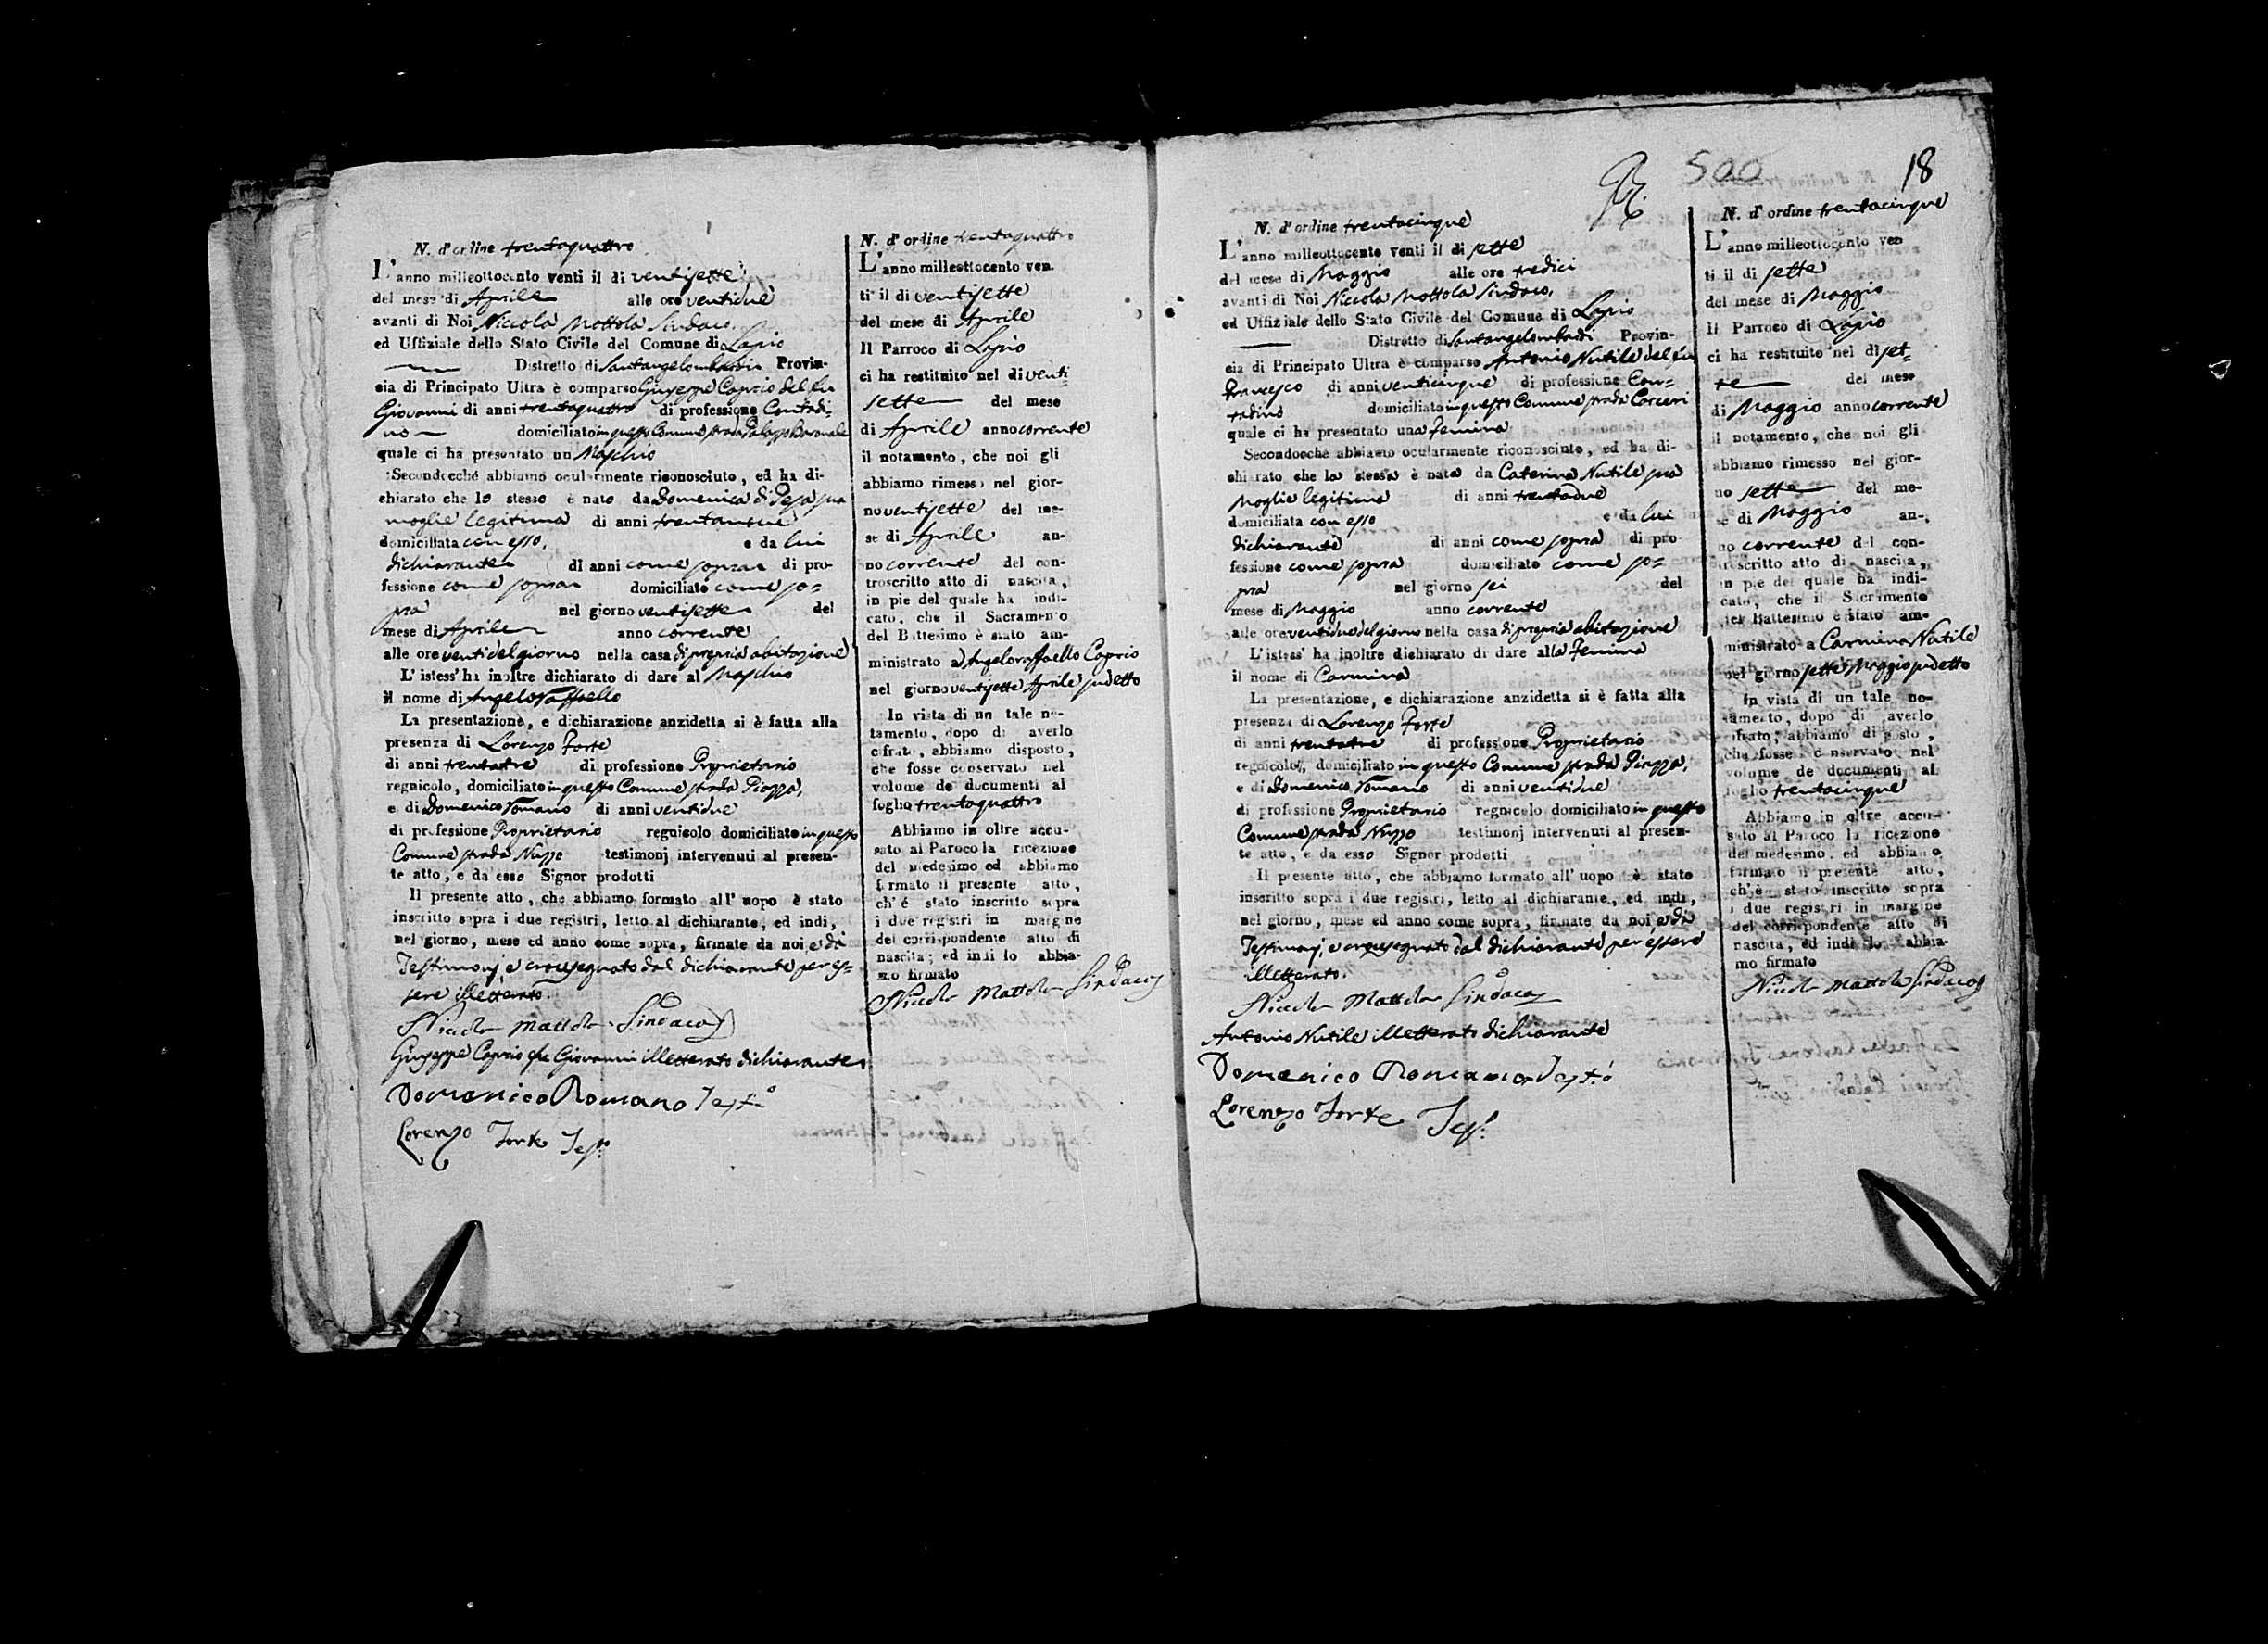 N. d'ordine trentaquattro
L'anno milleottocento venti il di ventisette
del mese di Aprile alle ore ventidue
avanti di Noi Niccola Mottola Sindaco,
ed Uffiziale dello Stato Civile del Comune di Lapio
Distretto di Santangelombardi Provin-
cia di Principato Ultra è comparso Giuseppe Caprio del fu
Giovanni di anni trentaquattro di professione Contadi-
no domiciliato in questo Comune strada Palazzo Baronale
quale ci ha presentato un Maschio
Secondocchè abbiamo ocularmente riconosciuto, ed ha di-
chiarato che lo stesso è nato da Domenica di Pesa sua
moglie legitima di anni
domiciliata con esso, e da lui
dichiarante di anni come sopra di pro-
fessione come sopra domiciliato come so-
pra nel giorno ventisette del
mese di Aprile anno corrente
alle ore venti del giorno nella casa di propria abitazione
L'istess' ha inoltre dichiarato di dare al Maschio
il nome di Angeloraffaello
La presentazione, e dichiarazione anzidetta si è fatta alla
presenza di Lorenzo Forte
di anni trentatre di professione Proprietario
regnicolo, domiciliato in questo Comune strada Piazza,
e di Domenico Romano di anni ventidue
di professione Proprietario regnicolo domiciliato in questo
Comune strada Nuzzo testimonj intervenuti al presen-
te atto, e da esso Signor prodotti
Il presente atto, che abbiamo formato all' uopo è stato
inscritto sopra i due registri, letto al dichiarante, ed indi,
nel giorno, mese ed anno come sopra, firmate da noi e da
Testimonj e crocesegnato dal dichiarante per es-
sere illetterato.
Niccola Mottola Sindaco
Giuseppe Caprio qm Giovanni illetterato dichiarante
Domenico Romano Test.o
Lorenzo Forte Tes.o
N. d'ordine trentaquattro
L'anno milleottocento ven-
ti il di ventisette
del mese di Aprile
Il Parroco di Lapio
ci ha restituito nel di venti-
sette del mese
di Aprile anno corrente
il notamento, che noi gli
abbiamo rimesso nel gior-
no ventisette del me-
se di Aprile an-
no corrente del con-
troscritto atto di nascita,
in pie del quale ha indi-
cato, che il Sacramento
del Battesimo è stato am-
ministrato a Angeloraffaello Caprio
nel giorno ventisette Aprile sudetto
In vista di un tale no-
tamento, dopo di averlo
cifrato, abbiamo disposto,
che fosse conservato nel
volume de documenti al
foglio trentaquattro
Abbiamo in oltre accu-
sato al Paroco la ricezione
del medesimo ed abbiamo
firmato il presente atto,
ch'é stato inscritto sopra
i due registri in margine
del corrispondente atto di
nascita; ed indi lo abbia-
mo firmato
Niccola Mottola Sindaco
500 18
N. d'ordine trentacinque
L'anno milleottocento venti il di sette
del mese di Maggio alle ore tredici
avanti di Noi Niccola Mottola Sindaco,
ed Uffiziale dello Stato Civile del Comune di Lapio
Distretto di Santangelombardi Provin-
cia di Principato Ultra è comparso Antonio Nutile del fu
Francesco di anni venticinque di professione Con-
tadino domiciliato in questo Comune strada Carceri
quale ci ha presentato una Femina
Secondocchè abbiamo ocularmente riconosciuto, ed ha di-
chiarato che la stessa è nata da Caterina Nutile sua
Moglie legitima di anni trentadue
domiciliata con esso e da lui
dichiarante di anni come sopra di pro-
fessione come sopra domiciliato come so-
pra nel giorno sei del
mese di Maggio anno corrente
alle ore ventidue del giorno nella casa di propria abitazione
L'istess' ha inoltre dichiarato di dare alla Femina
il nome di Carmina
La presentazione, e dichiarazione anzidetta si è fatta alla
presenza di Lorenzo Forte
di anni trentatre di professione Proprietario
regnicolo, domiciliato in questo Comune strada Piazza,
e di Domenico Romano di anni ventidue
di professione Proprietario regnicolo domiciliato in questo
Comune strada Nuzzo testimonj intervenuti al presen-
te atto, e da esso Signor prodotti
Il presente atto, che abbiamo formato all' uopo è stato
inscritto sopra i due registri, letto al dichiarante, ed indi,
nel giorno, mese ed anno come sopra, firmate da noi e da
Testimonj, e crocesegnato dal dichiarante per essere
illetterato.
Niccola Mottola Sindaco
Antonio Nutile illetterato dichiarante
Domenico Romano Test.o
Lorenzo Forte Tes.o
N. d'ordine trentacinque
L'anno milleottocento ven
ti il di sette
del mese di Maggio
Il Parroco di Lapio
ci ha restituito nel di set-
te del mese
di Maggio anno corrente
il notamento, che noi gli
abbiamo rimesso nel gior-
no sette del me-
se di Maggio an-
no corrente del con-
troscritto atto di nascita,
in pie del quale ha indi-
cato, che il Sacrimento
del Battesimo è stato am-
ministrato a Carmina Nutile
nel giorno sette Maggio sudetto
In vista di un tale no-
tamento, dopo di averlo
cifrato, abbiamo disposto,
che fosse conservato nel
volume de documenti al
foglio trentacinque
Abbiamo in oltre accu-
sato al Paroco la ricezione
del medesimo, ed abbiamo
firmato il presente atto,
ch'è stato inscritto sopra
i due registri in margine
del corrispondente atto di
nascita, ed indi lo abbia-
mo firmato
Niccola Mottola Sindaco